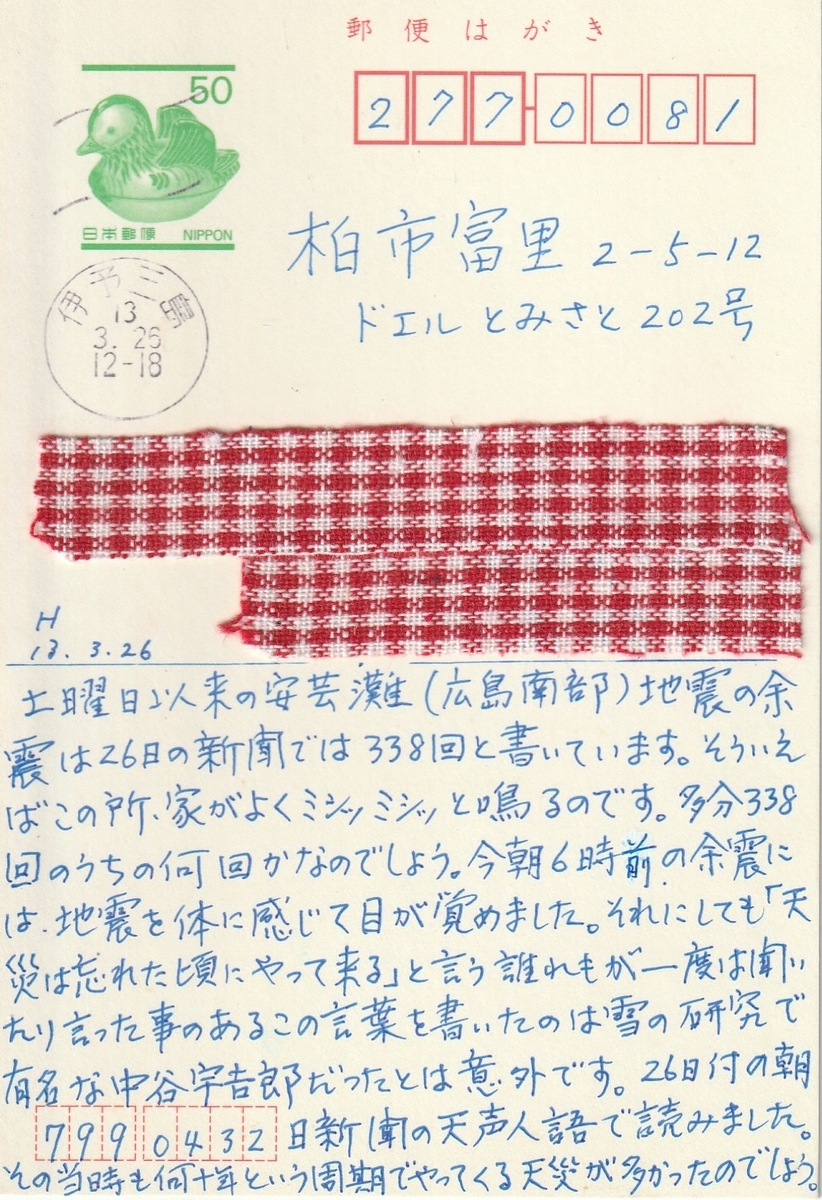 郵便はがき
50
日本郵便 NIPPON
277-0081
伊予三島
13
3.26
12-18
柏市富里 2-5-12
ドエルとみさと 202号
H
13.3.26
土曜日以来の安芸灘(広島南部)地震の余
震は26日の新聞では338回と書いています。そういえ
ばこの所、家がよくミシッミシッと鳴るのです。多分338
回のうちの何回かなのでしょう。今朝6時前の余震に
は、地震を体に感じて目が覚めました。それにしても「天
災は忘れた頃にやって来る」と言う誰れもが一度は聞い
たり言った事のあるこの言葉を書いたのは雪の研究で
有名な中谷宇吉郎だったとは意外です。26日付の朝
日新聞の天声人語で読みました。
799 0432
その当時も何十年という周期でやってくる天災が多かったのでしょう。